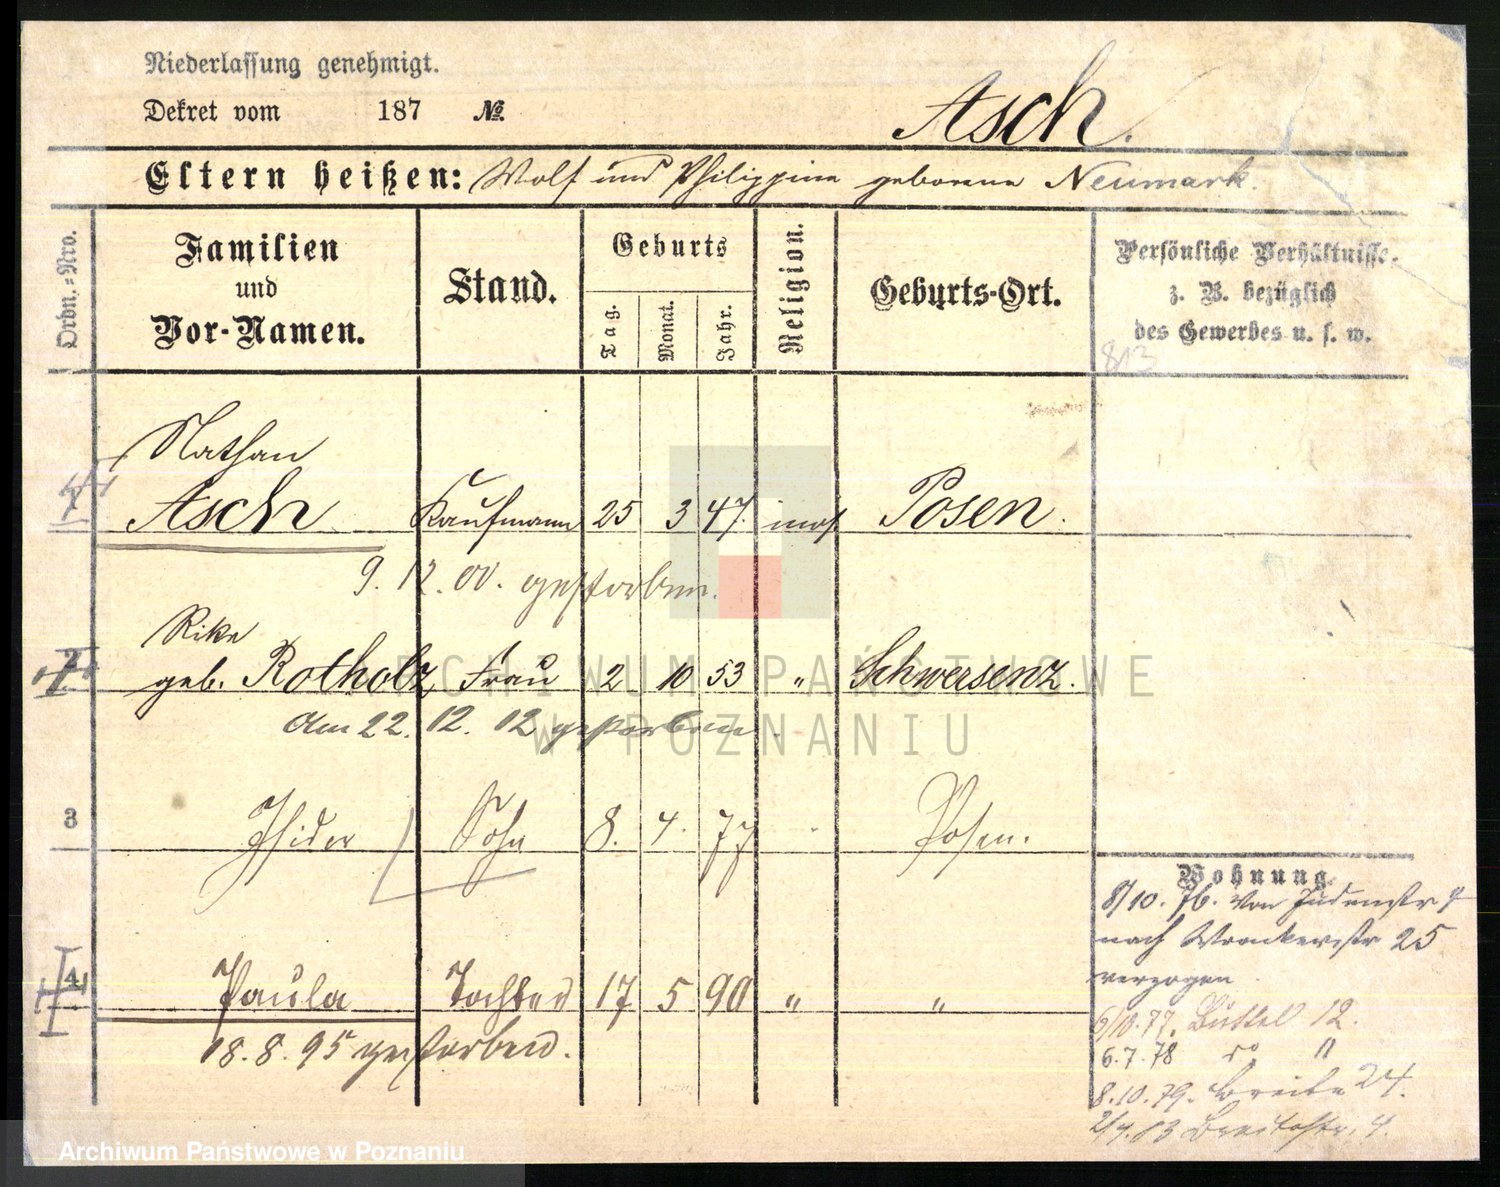 Niederlassung genehmigt.
Dekret vom 187 №
Asch.
Eltern heißen: Wolf und Philippine geborene Neumark.
Ordn.-Nro.
Familien
und
Vor-Namen.
Stand.
Geburts
Tag.
Monat.
Jahr.
Religion.
Geburts-Ort.
Persönliche Verhältnisse.
z. B. bezüglich
des Gewerbes u. s. w.
813
Nathan
1 Asch Kaufmann 25 3 47. mos. Posen.
9. 12. 00. gestorben.
Rike
2 geb. Rotholz Frau 2 10 53 " Schwersenz.
Am 22. 12. 12 gestorben.
3 Isidor Sohn 8. 4. 77 " Posen.
4 Paula Tochter 17 5 90 " "
18. 8. 95 gestorben.
Wohnung
8/10. 76. von Judenstr
nach Wronkerstr 25
verzogen
6/10. 77. Büttel 12.
6. 7. 78 do "
8. 10. 79. Breite 24.
2/4. 83 Breitestr. 4.
ARCHIWUM PAŃSTWOWE
W POZNANIU
Archiwum Państwowe w Poznaniu